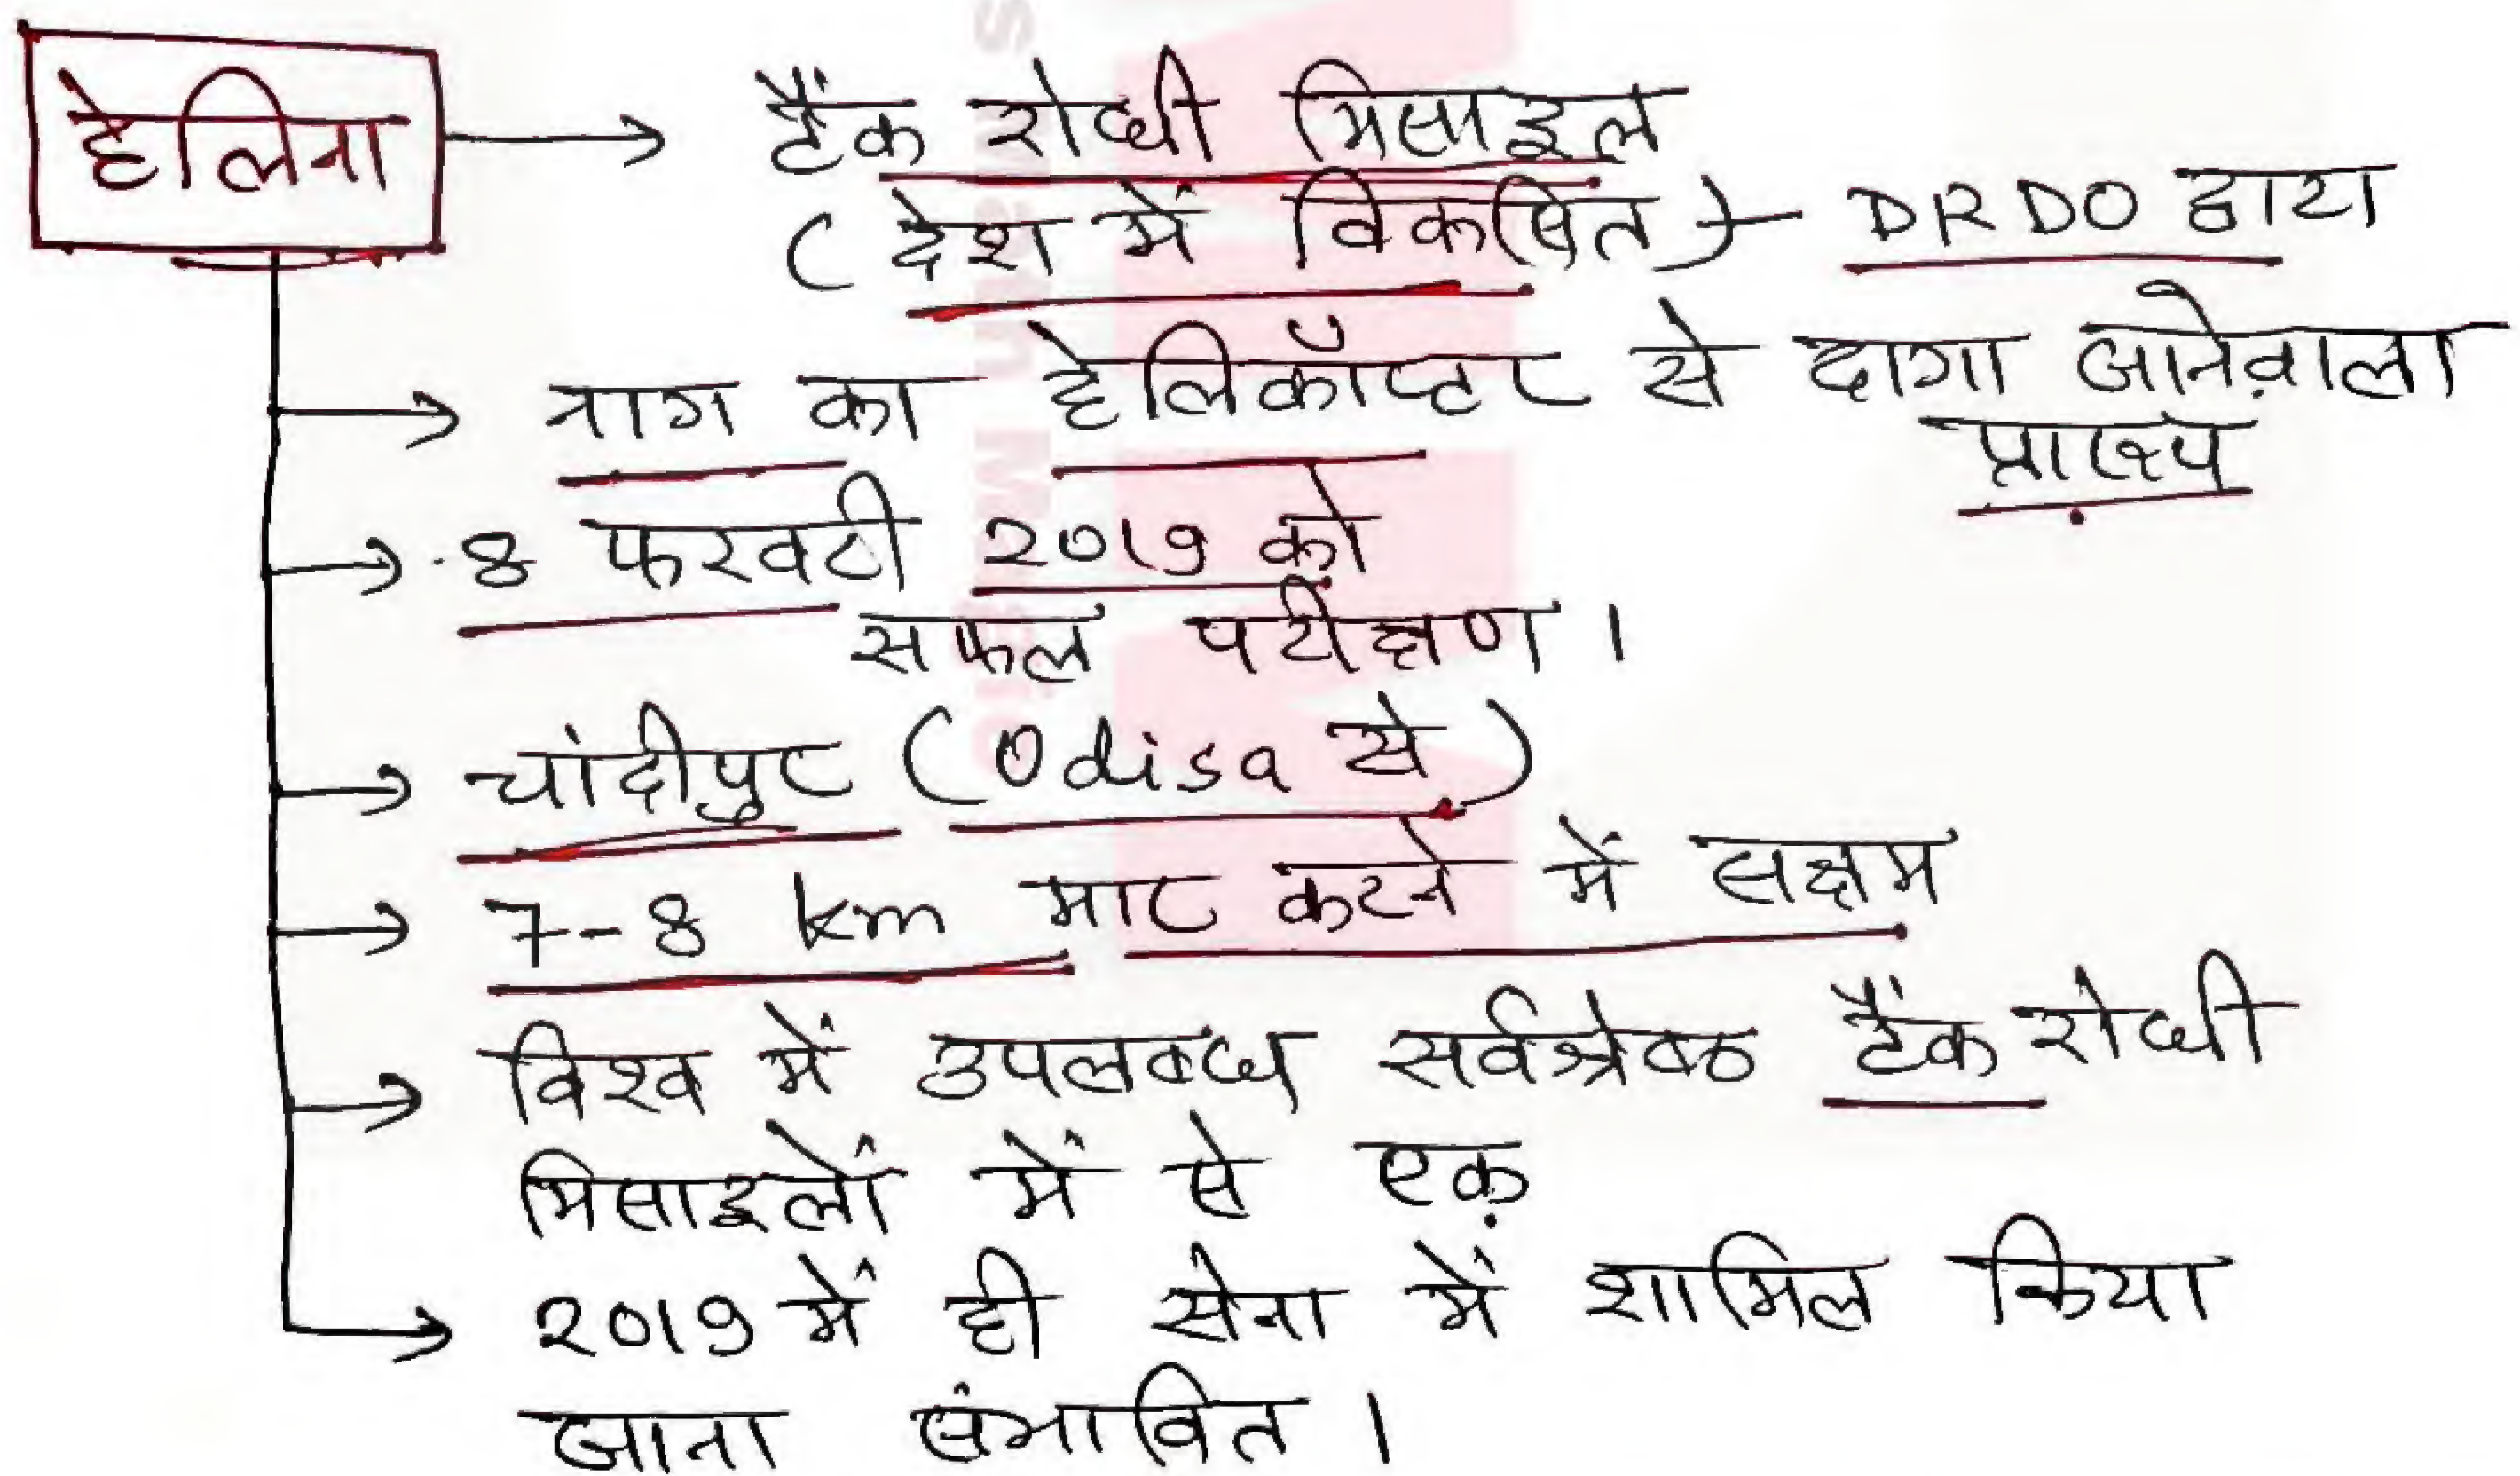 हेलिना → टैंक रोधी मिसाइल
(देश में विकसित) - DRDO द्वारा
→ नाग का हेलिकॉप्टर से दागा जानेवाला
प्रारूप
→ 8 फरवरी 2019 को
सफल परीक्षण।
→ चांदीपुर (Odisa से)
→ 7-8 km मार करने में सक्षम
→ विश्व में उपलब्ध सर्वश्रेष्ठ टैंक रोधी
मिसाइलों में से एक
→ 2019 में ही सेना में शामिल किया
जाना संभावित।